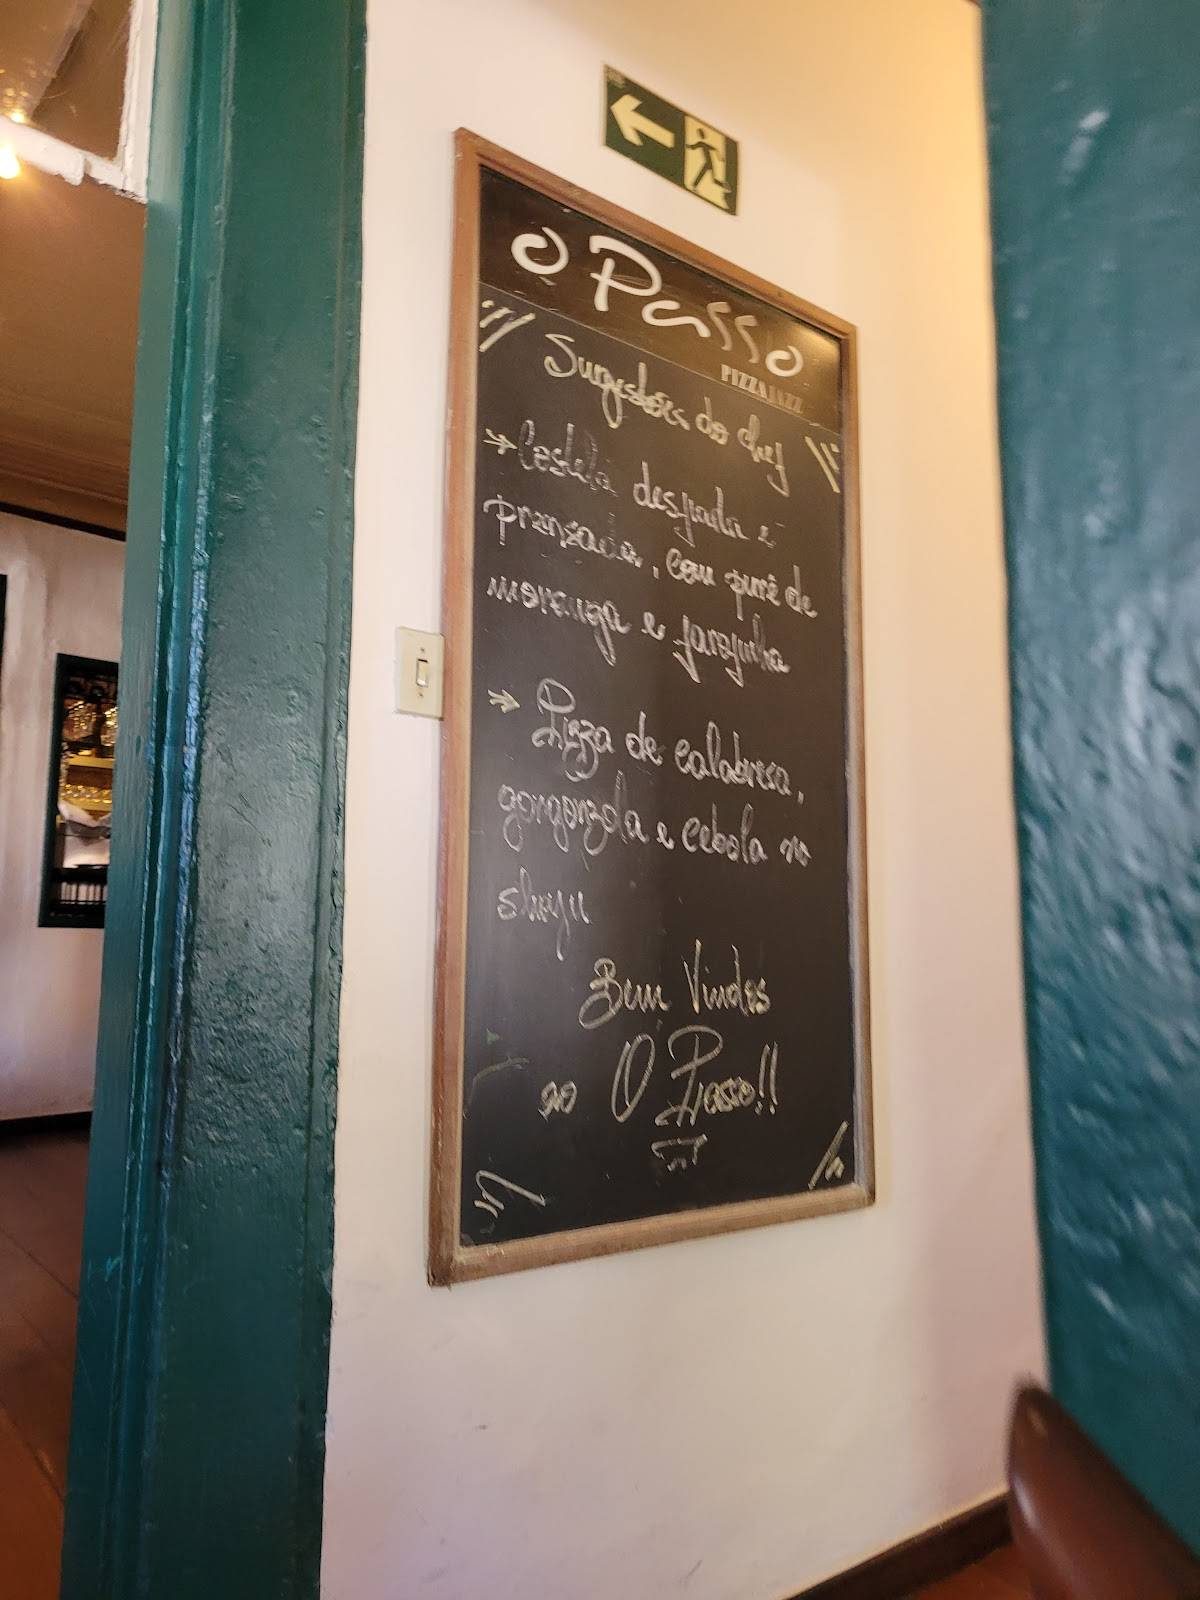 O Passo
PIZZAJAZZ
Sugestões do chef
Costela desfiada e
prensada, com purê de
moranga e farofinha
Pizza de calabresa,
gorgonzola e cebola no
shoyu
Bem Vindos
ao O Passo!!